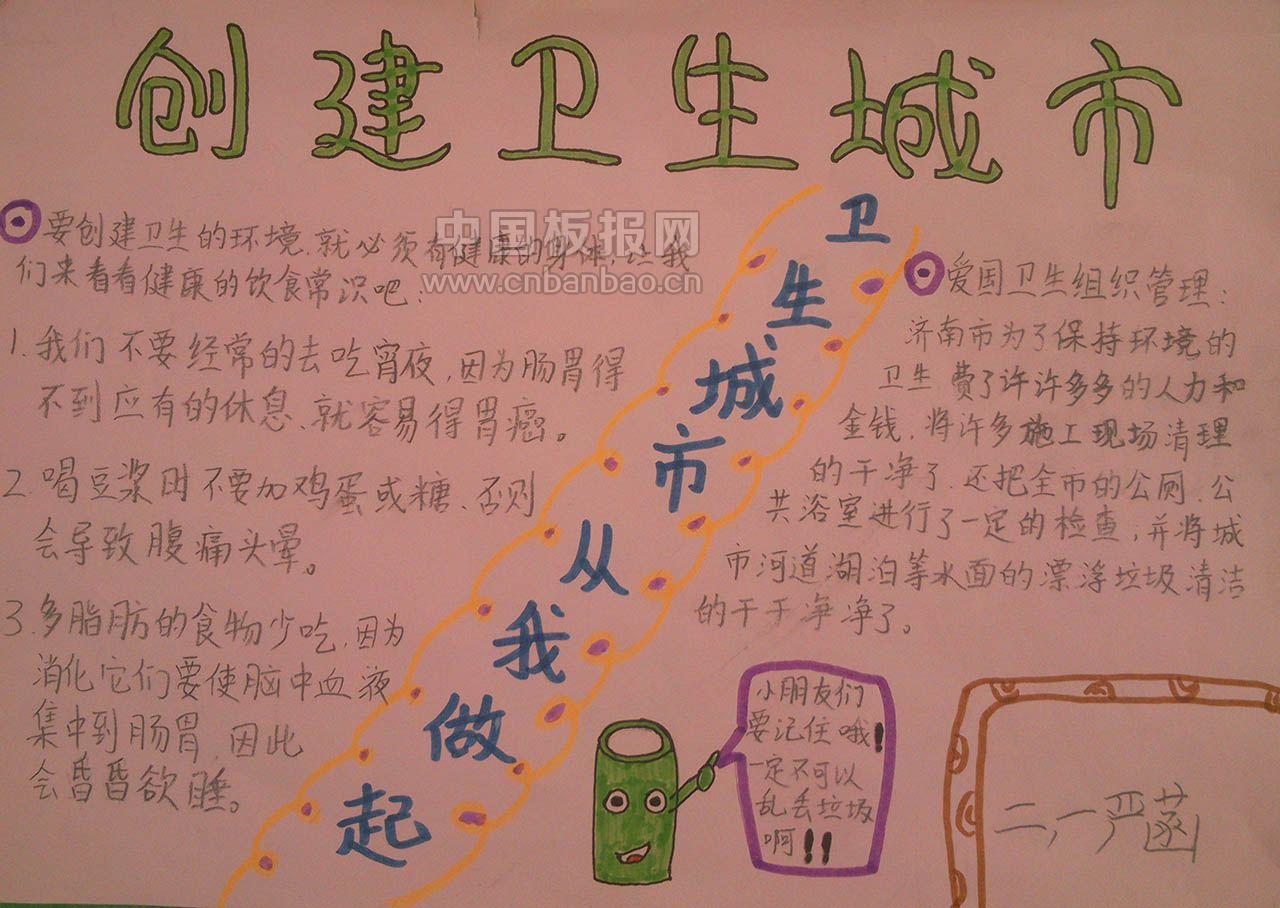 创建卫生城市
中国板报网
www.cnbanbao.cn
要创建卫生的环境、就必须有健康的身体,让我
们来看看健康的饮食常识吧:
1.我们不要经常的去吃宵夜,因为肠胃得
不到应有的休息、就容易得胃癌。
2.喝豆浆时不要加鸡蛋或糖、否则
会导致腹痛头晕。
3.多脂肪的食物少吃,因为
消化它们要使脑中血液
集中到肠胃,因此
会昏昏欲睡。
卫生城市从我做起
爱国卫生组织管理:
济南市为了保持环境的
卫生 费了许许多多的人力和
金钱,将许多施工现场清理
的干净了、还把全市的公厕、公
共浴室进行了一定的检查;并将城
市河道湖泊等水面的漂浮垃圾清洁
的干干净净了。
小朋友们
要记住哦!
一定不可以
乱丢垃圾
啊!!
二,一严菡